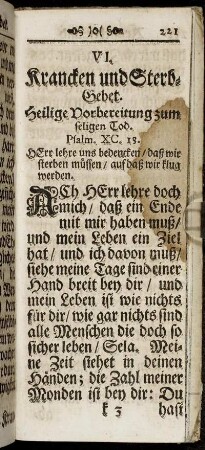 )o( 221
VI.
Krancken und Sterb-
Gebet.
Heilige Vorbereitung zum
seligen Tod.
Psalm. XC. 13.
HErr lehre uns bedencken / daß wir
sterben müssen / auf daß wir klug
werden.
ACh HErr lehre doch
mich / daß ein Ende
mit mir haben muß /
und mein Leben ein Ziel
hat / und ich davon muß /
siehe meine Tage sind einer
Hand breit bey dir / und
mein Leben ist wie nichts
für dir / wie gar nichts sind
alle Menschen die doch so
sicher leben / Sela. Mei-
ne Zeit stehet in deinen
Händen; die Zahl meiner
Monden ist bey dir: Du
k 3 hast